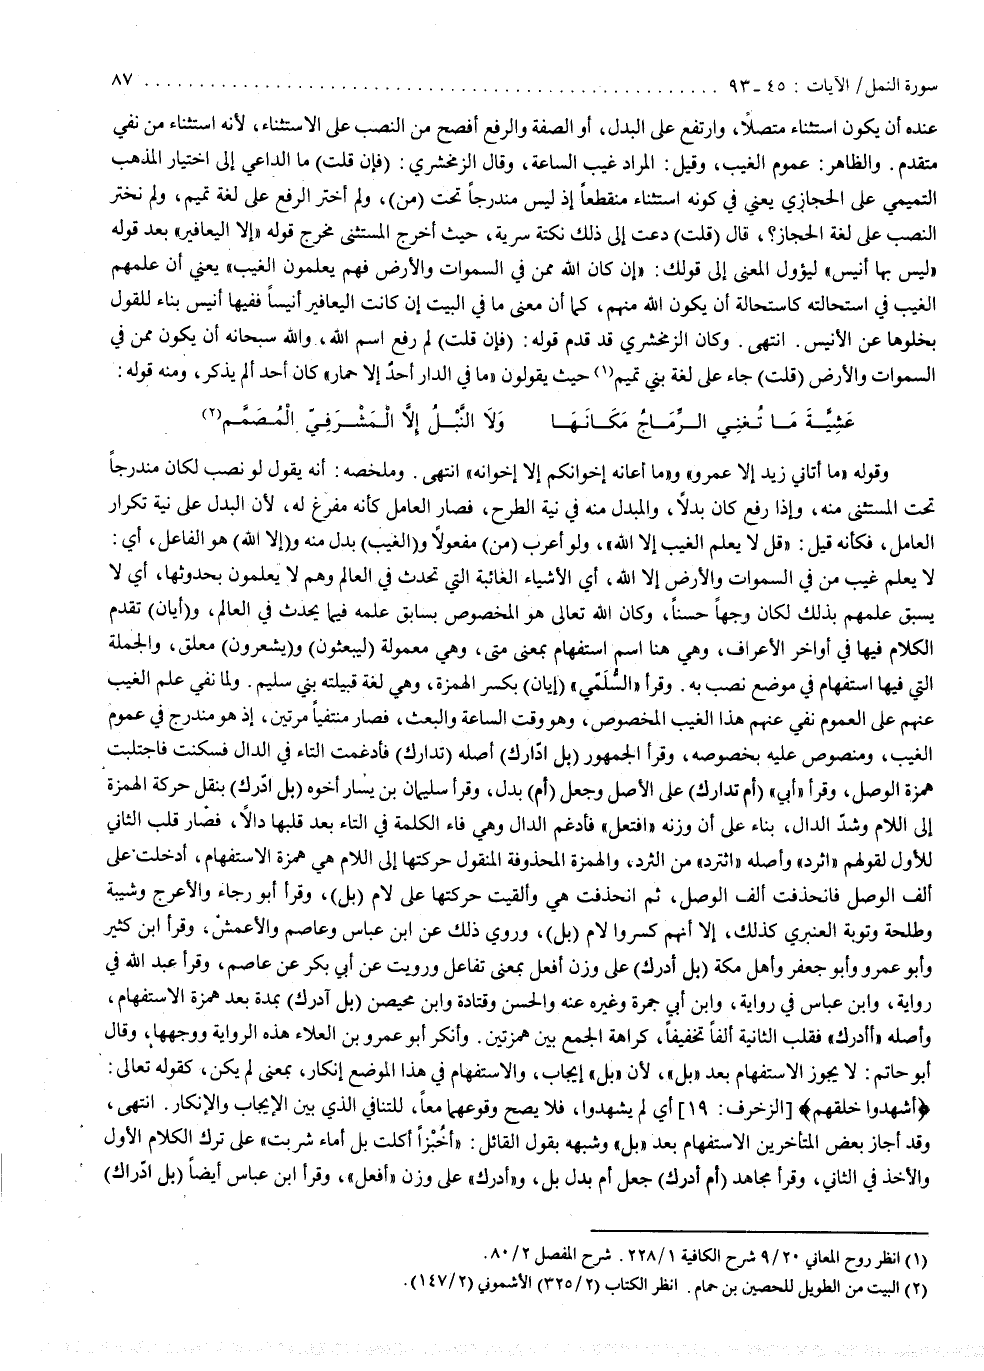 سورة النمل/ الآيات : ٤٥ ـ ٩٣ ........................................................ ٨٧
عنده أن يكون استثناء متصلاً، وارتفع على البدل، أو الصفة والرفع أفصح من النصب على الاستثناء، لأنه استثناء من نفي
متقدم. والظاهر: عموم الغيب، وقيل: المراد غيب الساعة، وقال الزمخشري: (فإن قلت) ما الداعي إلى اختيار المذهب
التميمي على الحجازي يعني في كونه استثناء منقطعاً إذ ليس مندرجاً تحت (من)، ولم أختر الرفع على لغة تميم، ولم نختر
النصب على لغة الحجاز؟، قال (قلت) دعت إلى ذلك نكتة سرية، حيث أخرج المستثنى مخرج قوله «إلا اليعافير» بعد قوله
«ليس بها أنيس» ليؤول المعنى إلى قولك: «إن كان الله ممن في السموات والأرض فهم يعلمون الغيب» يعني أن علمهم
الغيب في استحالته كاستحالة أن يكون الله منهم، كما أن معنى ما في البيت إن كانت اليعافير أنيساً ففيها أنيس بناء للقول
بخلوها عن الأنيس. انتهى. وكان الزمخشري قد قدم قوله: (فإن قلت) لم رفع اسم الله، والله سبحانه أن يكون ممن في
السموات والأرض (قلت) جاء على لغة بني تميم(١) حيث يقولون «ما في الدار أحدٌ إلا حمار» كان أحد ألم يذكر، ومنه قوله:
عَشِيَّةَ مَا تُغنِي الرِّمَاحُ مَكَانَهَا وَلَا النَّبْلُ إِلَّا الْمَشْرَفِيّ الْمُصَمَّم(٢)
وقوله «ما أتاني زيد إلا عمرو» و«ما أعانه إخوانكم إلا إخوانه» انتهى. وملخصه: أنه يقول لو نصب لكان مندرجاً
تحت المستثنى منه، وإذا رفع كان بدلاً، والمبدل منه في نية الطرح، فصار العامل كأنه مفرغ له، لأن البدل على نية تكرار
العامل، فكأنه قيل: «قل لا يعلم الغيب إلا الله»، ولو أعرب (من) مفعولاً و(الغيب) بدل منه و(إلا الله) هو الفاعل، أي:
لا يعلم غيب من في السموات والأرض إلا الله، أي الأشياء الغائبة التي تحدث في العالم وهم لا يعلمون بحدوثها، أي لا
يسبق علمهم بذلك لكان وجهاً حسناً، وكان الله تعالى هو المخصوص بسابق علمه فيما يحدث في العالم، و(أيان) تقدم
الكلام فيها في أواخر الأعراف، وهي هنا اسم استفهام بمعنى متى، وهي معمولة (ليبعثون) و(يشعرون) معلق، والجملة
التي فيها استفهام في موضع نصب به. وقرأ «السُّلَمّي» (إيان) بكسر الهمزة، وهي لغة قبيلته بني سليم. ولما نفي علم الغيب
عنهم على العموم نفي عنهم هذا الغيب المخصوص، وهو وقت الساعة والبعث، فصار منتفياً مرتين، إذ هو مندرج في عموم
الغيب، ومنصوص عليه بخصوصه، وقرأ الجمهور (بل ادّارك) أصله (تدارك) فأدغمت التاء في الدال فسكنت فاجتلبت
همزة الوصل، وقرأ «أبي» (أم تدارك) على الأصل وجعل (أم) بدل، وقرأ سليمان بن يسار أخوه (بل ادرك) بنقل حركة الهمزة
إلى اللام وشدّ الدال، بناء على أن وزنه «افتعل» فأدغم الدال وهي فاء الكلمة في التاء بعد قلبها دالاً، فصار قلب الثاني
للأول لقولهم «اثرد» وأصله «اثترد» من الثرد، والهمزة المحذوفة المنقول حركتها إلى اللام هي همزة الاستفهام، أدخلت على
ألف الوصل فانحذفت ألف الوصل، ثم انحذفت هي وألقيت حركتها على لام (بل)، وقرأ أبو رجاء والأعرج وشيبة
وطلحة وتوبة العنبري كذلك، إلا أنهم كسروا لام (بل)، وروي ذلك عن ابن عباس وعاصم والأعمش، وقرأ ابن كثير
وأبو عمرو وأبو جعفر وأهل مكة (بل أدرك) على وزن أفعل بمعنى تفاعل ورويت عن أبي بكر عن عاصم، وقرأ عبد الله في
رواية، وابن عباس في رواية، وابن أبي جمرة وغيره عنه والحسن وقتادة وابن محيصن (بل آدرك) بمدة بعد همزة الاستفهام،
وأصله «أأدرك» فقلب الثانية ألفاً تخفيفاً، كراهة الجمع بين همزتين. وأنكر أبو عمرو بن العلاء هذه الرواية ووجهها، وقال
أبو حاتم: لا يجوز الاستفهام بعد «بل»، لأن «بل» إيجاب، والاستفهام في هذا الموضع إنكار، بمعنى لم يكن، كقوله تعالى:
﴿أشهدوا خلقهم﴾ [الزخرف: ١٩] أي لم يشهدوا، فلا يصح وقوعهما معاً، للتنافي الذي بين الإيجاب والإنكار. انتهى،
وقد أجاز بعض المتأخرين الاستفهام بعد «بل» وشبهه بقول القائل: «أخُبْزاً أكلت بل أماء شربت» على ترك الكلام الأول
والأخذ في الثاني، وقرأ مجاهد (أم أدرك) جعل أم بدل بل، و«أدرك» على وزن «أفعل»، وقرأ ابن عباس أيضاً (بل ادّراك)
(١) انظر روح المعاني ٩/٢٠ شرح الكافية ٢٢٨/١. شرح المفصل ٨٠/٢.
(٢) البيت من الطويل للحصين بن حمام. انظر الكتاب (٣٢٥/٢) الأشموني (١٤٧/٢).